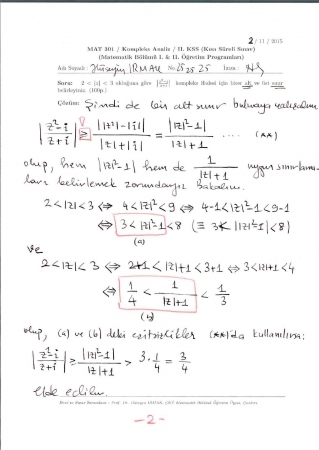 2 / 11 / 2015
MAT 301 / Kompleks Analiz / II. KSS (Kısa Süreli Sınav)
(Matematik Bölümü I. & II. Öğretim Programları)
Adı Soyadı : Hüseyin IRMAK No: 25 25 25 İmza :
Soru: 2 < |z| < 3 olduğuna göre |z²-i / z+i| kompleks ifadesi için birer alt ve üst sınır
belirleyiniz. (100p.)
Çözüm: Şimdi de bir alt sınır bulmaya çalışalım
|z²-i / z+i| ≥ ||z²|-|i|| / |z|+|i| = ||z|²-1| / |z|+1 .... (**)
olup, hem ||z|²-1| hem de 1 / |z|+1 uygun sınırlamaları
belirlemek zorundayız. Bakalım.
2<|z|<3 ⇔ 4<|z|²<9 ⇔ 4-1<|z|²-1<9-1
⇔ 3<|z|²-1<8 (≡ 3<||z|²-1|<8)
(a)
ve
2<|z|<3 ⇔ 2+1<|z|+1<3+1 ⇔ 3<|z|+1<4
⇔ 1/4 < 1 / |z|+1 < 1/3
(b)
olup, (a) ve (b) deki eşitsizlikler (**)'da kullanılırsa:
|z²-i / z+i| ≥ ||z|²-1| / |z|+1 > 3·1/4 = 3/4
elde edilir.
-2-